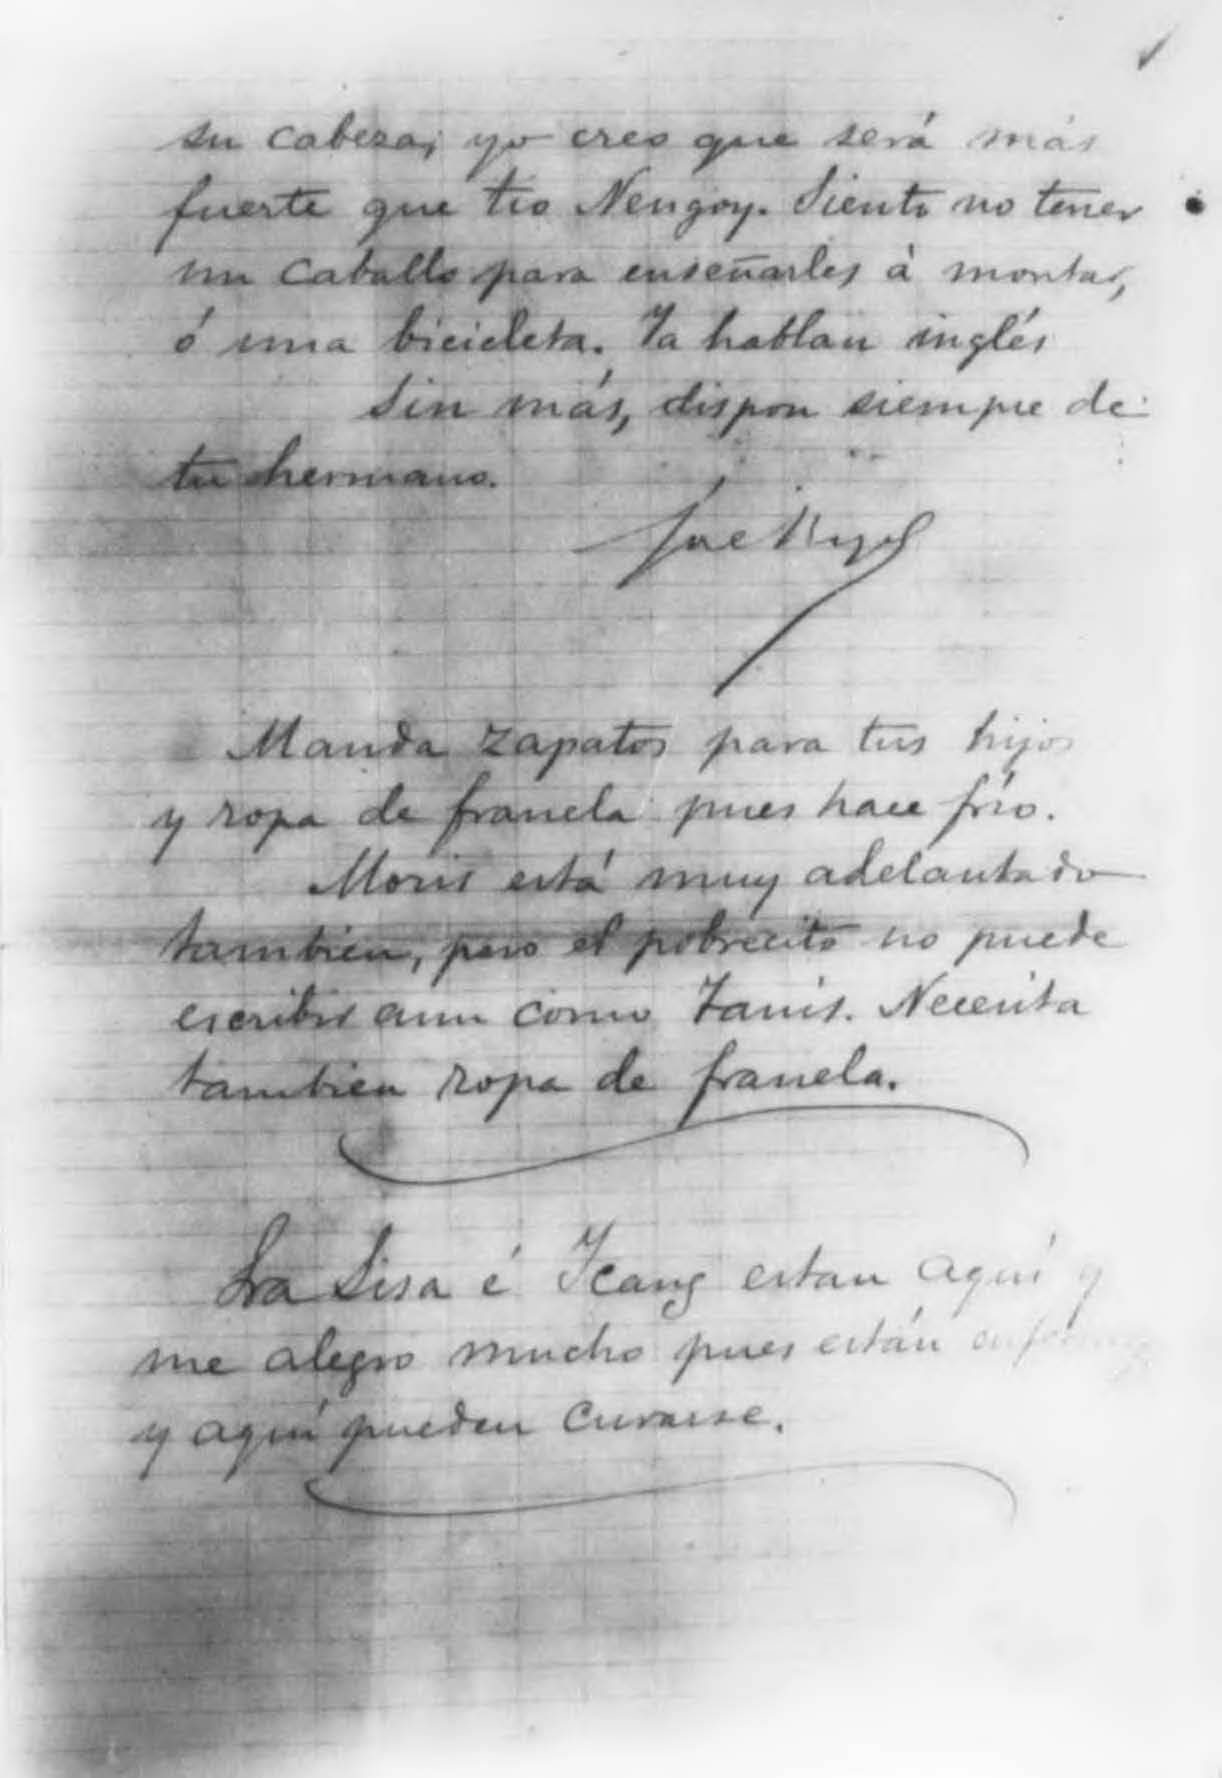 su cabeza; yo creo que será más
fuerte que tio Nengoy. Siento no tener
un caballo para enseñarles à montar,
ó una bicicleta. Ya hablan inglés
Sin más, dispon siempre de
tu hermano.
José Rizal
Manda zapatos para tus hijos
y ropa de franela pues hace frío.
Moris está muy adelantado
tambien, pero el pobrecito no puede
escribir aun como Tanis. Necesita
tambien ropa de franela.
Sra Sisa é Icang estan aquí y
me alegro mucho pues están
y aquí pueden curarse.